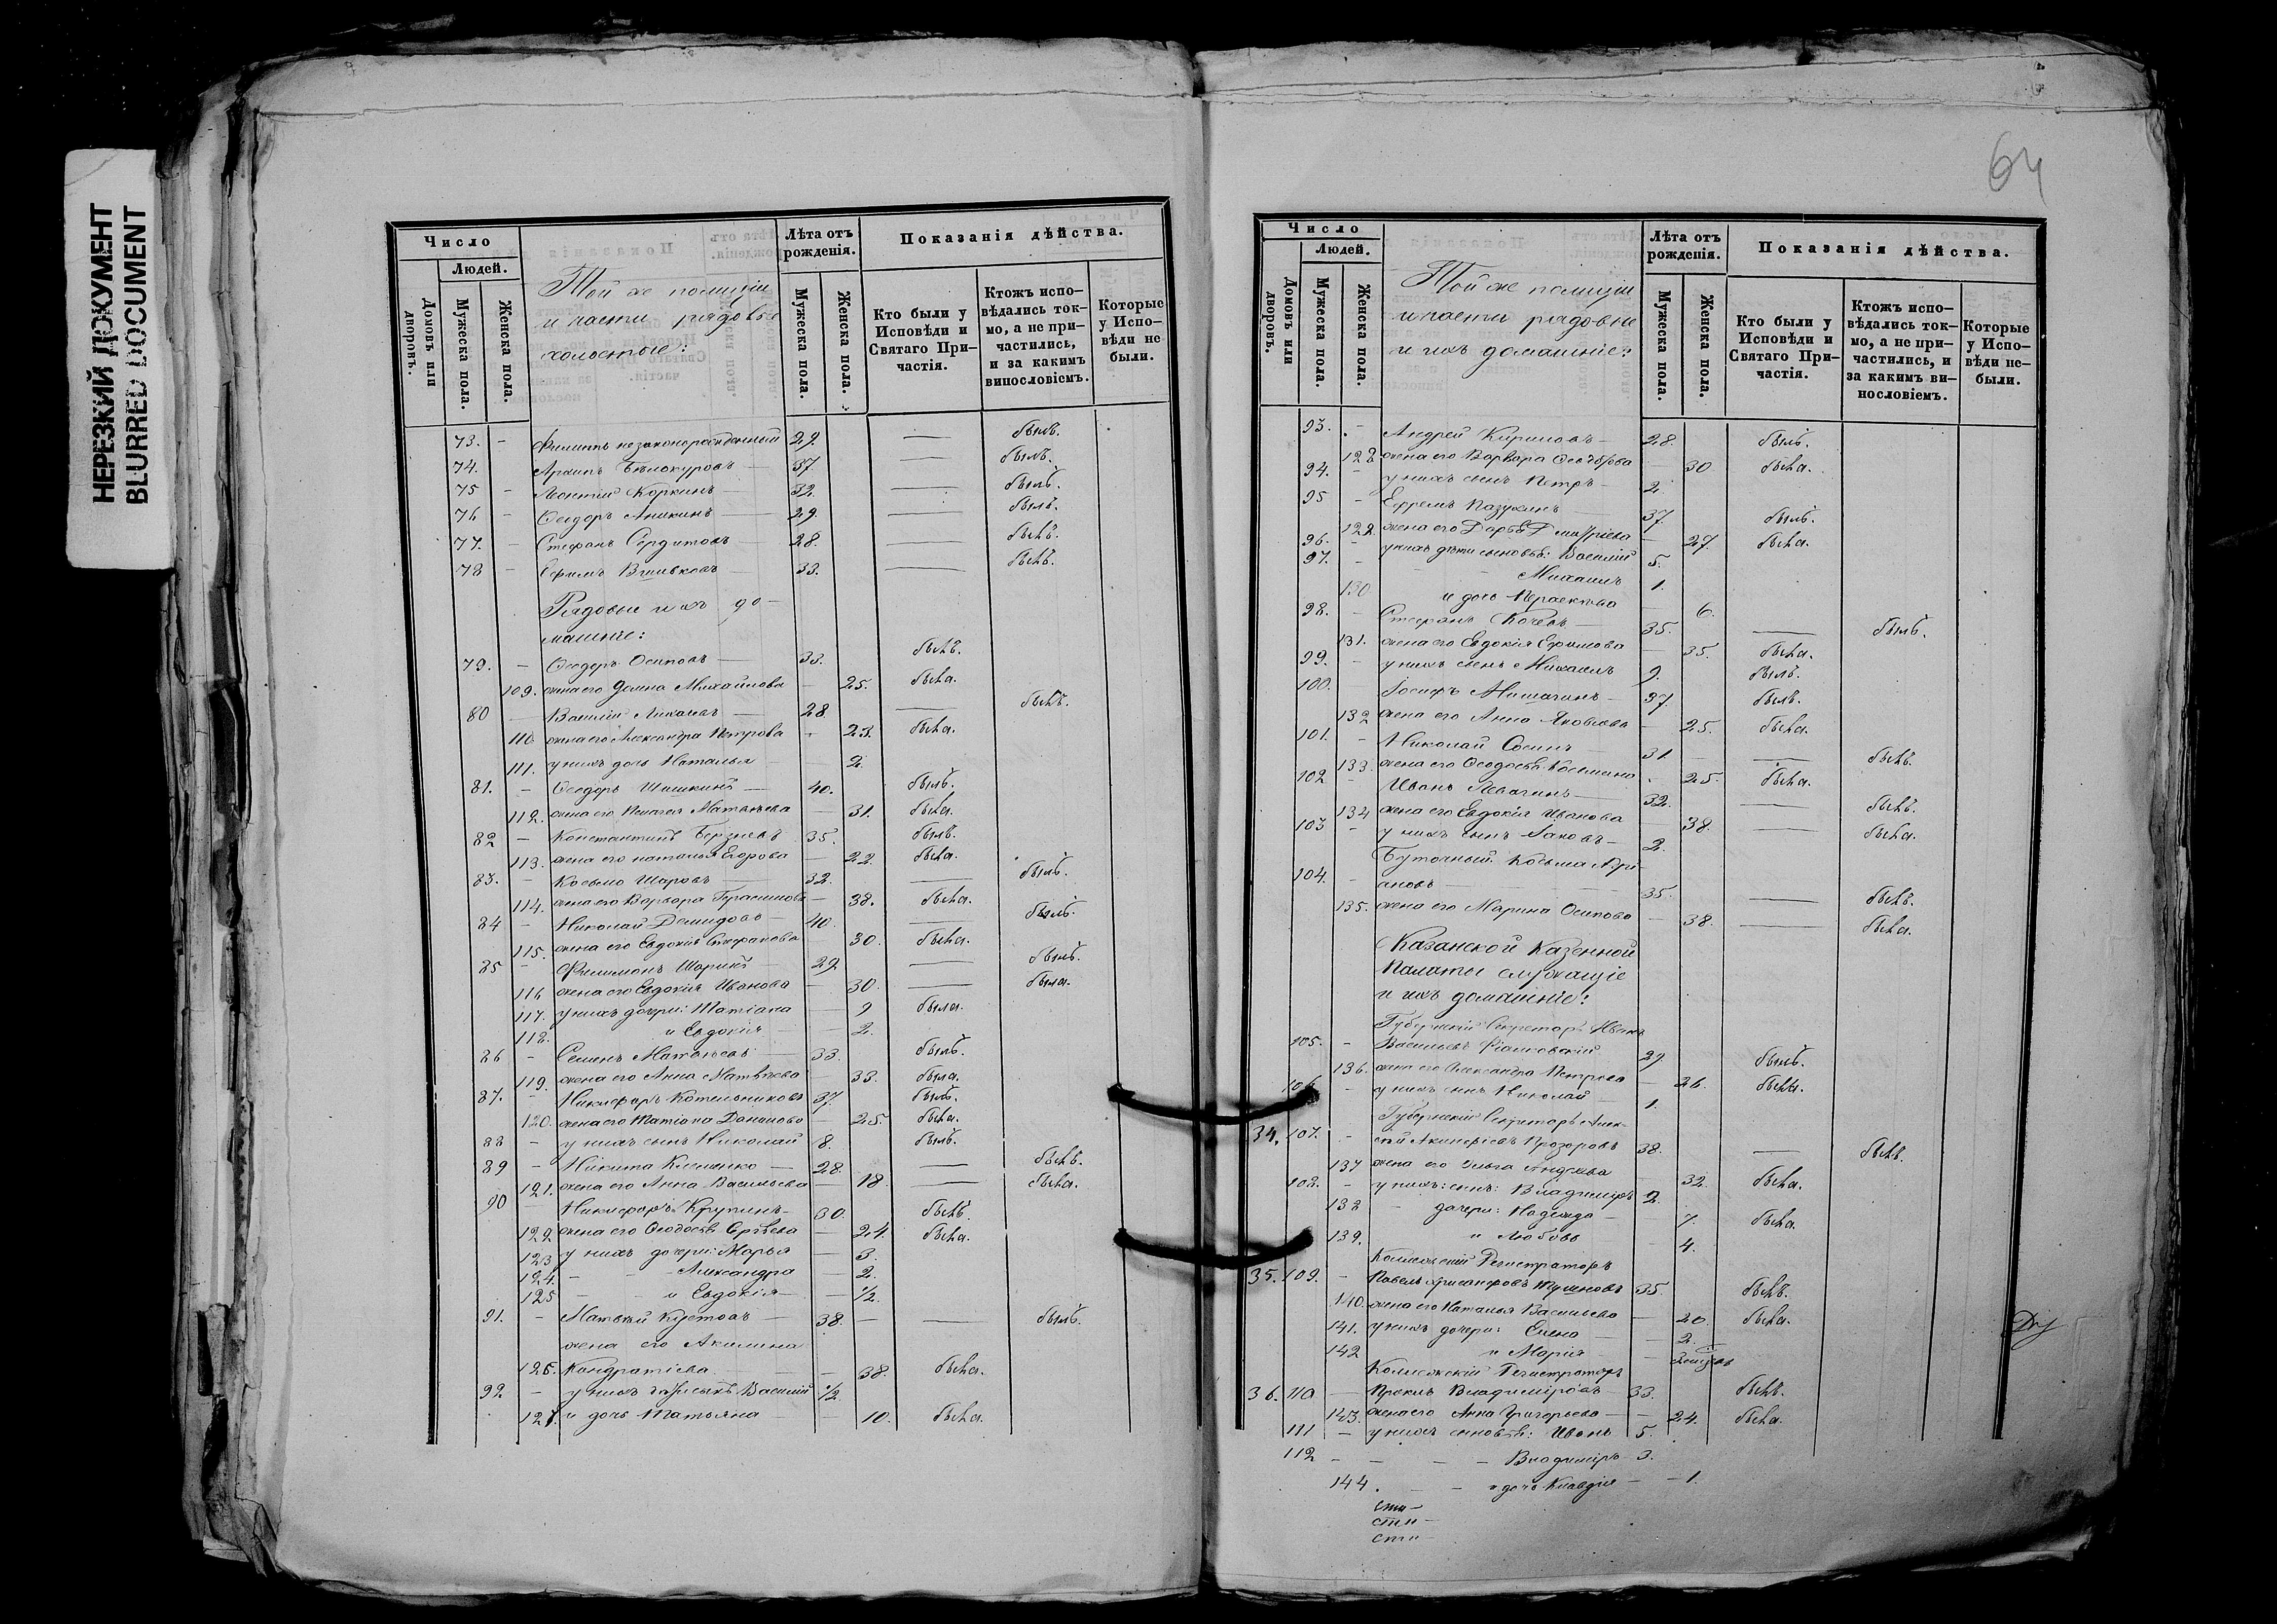 НЕРЕЗКИЙ ДОКУМЕНТ
BLURRED DOCUMENT
Число
Людей.
Домовъ или дворовъ.
Мужеска пола.
Женска пола.
Той же полиціи
и части рядовые
холостые:
Лѣта отъ рожденія.
Мужеска пола.
Женска пола.
Показанія дѣйства.
Кто были у Исповѣди и Святаго Причастія.
Ктожъ исповѣдались токмо, а не причастились, и за какимъ винословіемъ.
Которые у Исповѣди не были.
73. - Филиппъ незаконорожденный 29. — былъ.
74. Архипъ Бѣлокуровъ — 37. — былъ.
75 - Леонтій Коркинъ — 32. — былъ.
76 - Ѳеодоръ Аникинъ — 29. — былъ.
77. - Стефанъ Сердитовъ — 28. — былъ.
78 - Ефимъ — 33. — былъ.
Рядовые и ихъ до-
машніе:
79. - Ѳеодоръ Осиповъ — 33. былъ.
109. жена его Домна Михайлова — 25. была.
80 — Василій — 28. — былъ.
110 жена его Александра Петрова - 23. была.
111. у нихъ дочь Наталья 2.
81. - Ѳеодоръ Шишкинъ — 40. былъ.
112. жена его Пелагея Матвѣева — 31. была.
82 - Константинъ 35. былъ.
113. жена его Наталья Егорова — 22. была.
83. - Косьма Шаровъ — 32. — былъ.
114. жена его Варвара Герасимова — 38. была.
84 - Николай Демидовъ — 40. — былъ.
115. жена его Евдокія Стефанова 30. была.
85 - Филимонъ 29. — былъ.
116 жена его Евдокія Иванова — 30. — была.
117. у нихъ дочери: Татіана — 9 была.
118. и Евдокія — 2.
86 - Семенъ Матвѣевъ — 33. былъ.
119. жена его Анна Матвѣева — 33. была.
87. - Никифоръ Котельниковъ 37. былъ.
120. жена его Татіана Данилова — 25. была.
88 - у нихъ сынъ Николай 8. былъ.
89 - Никита — 28. — былъ.
121. жена его Анна Васильева — 18. — была.
90 - Никифоръ Крупинъ - 30. былъ.
122 жена его Ѳеодосья Сергѣева — 24. была.
123 у нихъ дочери: Марья — 3.
124. - - Александра — 2.
125 - - и Евдокія — 1/2.
91. - Матвѣй — 38. — — былъ.
жена его Акилина
126. Кондратіева — 38. была.
92 - у нихъ сынъ Василій 1/2
127. и дочь Татьяна — 10. была.
64
Число
Людей.
Домовъ или дворовъ.
Мужеска пола.
Женска пола.
Той же полиціи
и части рядовые
и ихъ домашніе:
Лѣта отъ рожденія.
Мужеска пола.
Женска пола.
Показанія дѣйства.
Кто были у Исповѣди и Святаго Причастія.
Ктожъ исповѣдались токмо, а не причастились, и за какимъ винословіемъ.
Которые у Исповѣди небыли.
93. - Андрей Кириловъ — 28. былъ.
128 жена его Варвара — 30 была.
94. - у нихъ сынъ Петръ — 2.
95 - Ефремъ Пазухинъ — 37. былъ.
129. жена его Дарья Дмитріева — 27. была.
96. - у нихъ дѣти сыновья: Василій 5.
97. - - Михаилъ 1.
130. и дочь Прасковья — 6.
98. - Стефанъ — 35. — былъ.
131. жена его Евдокія Ефимова — 35. была.
99. - у нихъ сынъ Михаилъ 9. былъ.
100. Іосифъ — 37. былъ.
132 жена его Анна Яковлева — 25. была.
101. - Николай — 31. — былъ.
133. жена его Ѳеодосья Косьмина - 25. была.
102 - Иванъ — 32. — былъ.
134 жена его Евдокія Иванова 38. — была.
103 - у нихъ сынъ Іаковъ — 2.
Буточный Косьма Андрі-
104. - ановъ — 35. — былъ.
135. жена его Марина Осипова — 38. — была.
Казанской Казенной
Палаты служащіе
и ихъ домашніе:
Губернскій Секретарь Иванъ
105. - Васильевъ 29. былъ.
136. жена его Александра Петрова — 26. была.
106. - у нихъ сынъ Николай — 1.
Губернскій Секретарь Алек-
34. 107. - сѣй Прозоровъ 38. — былъ.
137 жена его Ольга Андреева 32. была.
108. - у нихъ: сынъ: Владиміръ 2.
138 - дочери: Надежда — 7. была.
139. и Любовь 4.
Колежскій Регистраторъ
35. 109. - Павелъ Хрисанфовъ 35. былъ.
140. жена его Наталья Васильева — 20. была.
141. у нихъ дочери: Елена — 2.
142 и Марія —
Колежскій Регистраторъ
36. 110 — Владиміровъ — 33. былъ.
143. жена его Анна Григорьева — 24. была.
111 - у нихъ сыновья: Иванъ 5.
112 - - - Владиміръ - 3.
144. - - и дочь Клавдія — 1.